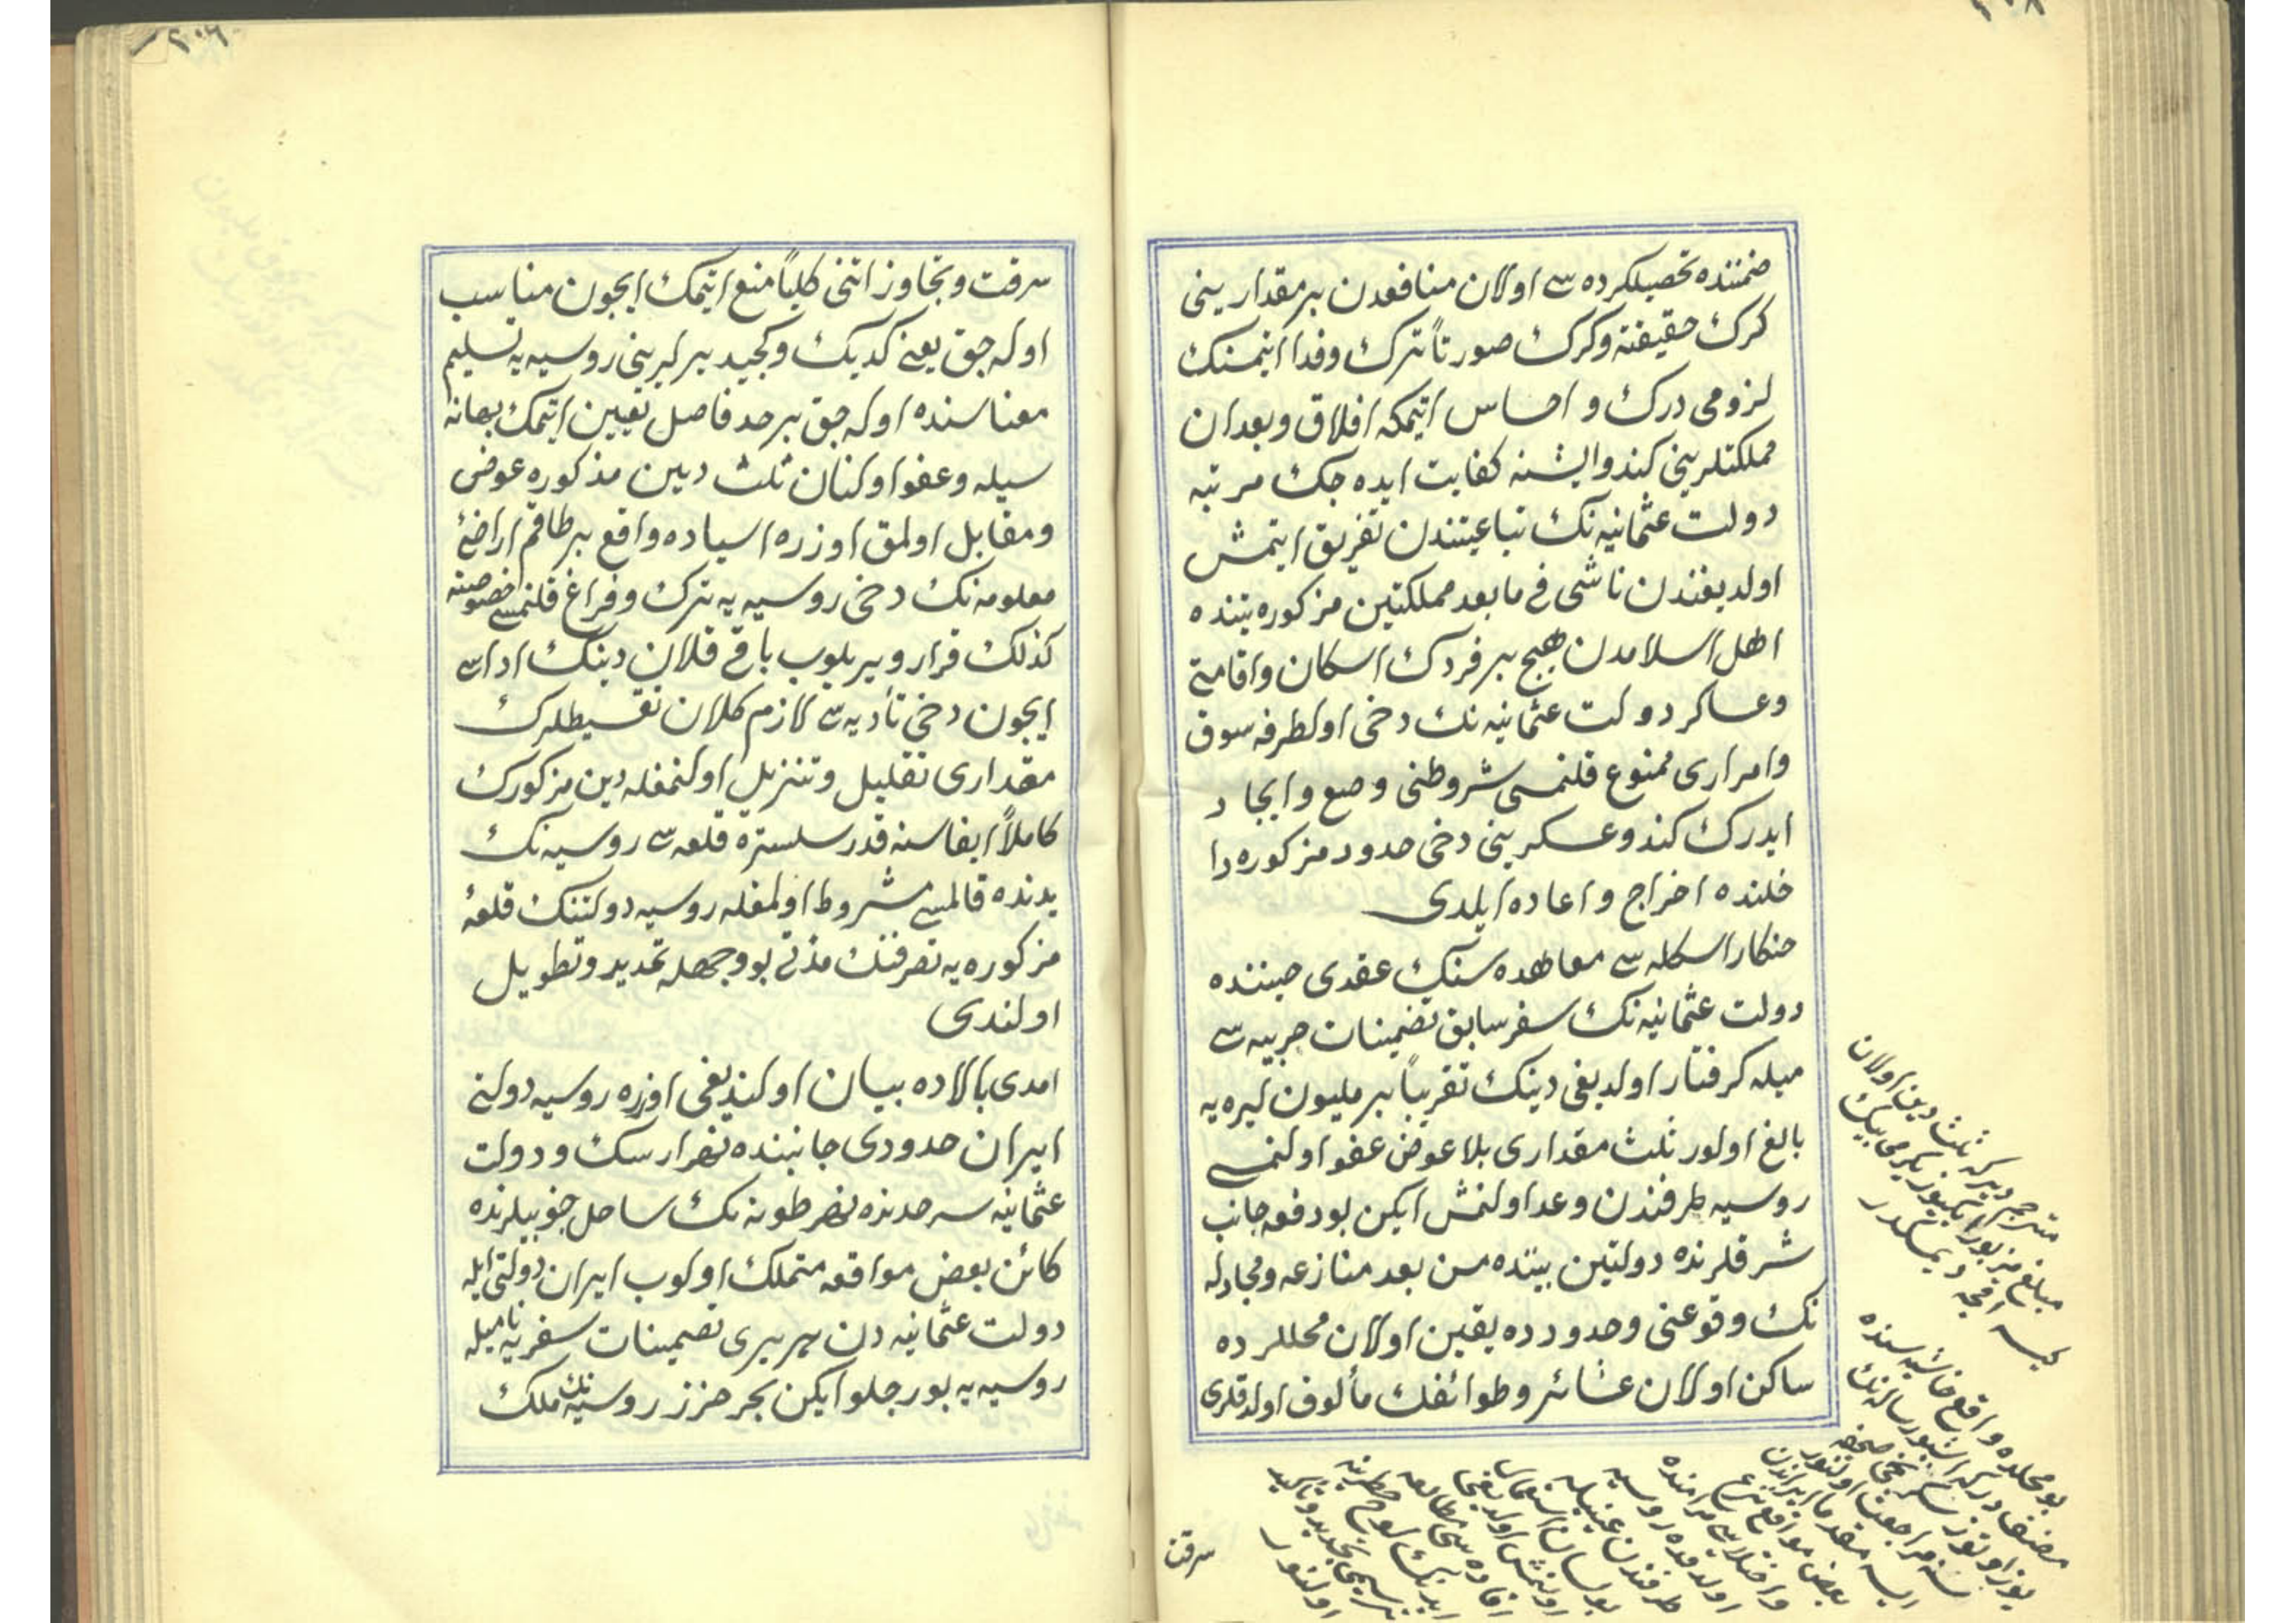 ضمننده تحصیلکرده سی اولان منافعدن بر مقدارینی
کرك حقیقةً و کرك صورتاً ترك و فدا ایتمنك
لزومی درك و احساس ایتمکه افلاق و بغدان
مملکتلرینی کندو ایشنه کفایت ایده جك مرتبه
دولت عثمانیه نك تباعیتندن تفریق ایتمش
اولدیغندن ناشی فی مابعد مملکتین مزکوره یتنده
اهل اسلامدن هیچ بر فردك اسکان و اقامتی
و عساکر دولت عثمانیه نك دخی اولطرفه سوق
و امراری ممنوع قلنمسی شروطنی وضع و ایجاد
ایدرك کندو عسکرینی دخی حدود مزکوره دا
خلنده اخراج و اعاده ایلدی
حنکار اسکله سی معاهده سنك عقدی حیننده
دولت عثمانیه نك سفر سابق تضمینات حربیه سی
میله کرفتار اولدیغی دینك تقریباً بر ملیون لیره یه
بالغ اولور ثلث مقداری بلا عوض عفو اولنمسی
روسیه طرفندن وعد اولنمش ایکن بو دفعه جانب
شرقلرنده دولتین بیننده من بعد منازعه و مجادله
نك وقوعنی و حدوده یقین اولان محللرده
ساکن اولان عشائر و طوائفك مألوف اولدقلری
مترجم دیر که ثلث دین اولان
مبلغ مزبور ایکیوز یکرمی بیك
کیسه اقچه دیمکدر
بو محلده واقع حاشیه سنده
مصنف دیر که اشبو رساله نك
یوز اوتوز سکزنجی صحیفه
سنه مراجعت اولنور
ایسه مقدما ایراندن
بعض مواقع نزع
و اختلاسی مرامنده
اولدقده روسیه
طرفندن عینیله
بو لسان استعمال
اولنمش اولدیغنی
افاده سی مطالعه
ایدنك لوح خاطرینه
ترسیمی تجدید و تأکید
اولنور
سرقت
سرقت و تجاوز اتنی کلیاً منع ایتمك ایچون مناسب
اوله جق یعنی کدیك و کجید یرلرینی روسیه یه تسلیم
معناسنده اوله جق بر حد فاصل تعیین ایتمك بهانه
سیله و عفو اولنان ثلث دین مذکوره عوض
و مقابل اولمق اوزره اسیاده واقع بر طاقم اراضئ
معلومه نك دخی روسیه یه ترك و فراغ قلنمسی خصوصنه
کذلك قرار ویریلوب باقی قلان دینك اداسی
ایچون دخی تأدیه سی لازم کلان تقسیطلرك
مقداری تقلیل و تنزیل اولنمغله دین مزکورك
کاملاً ایفاسنه قدر سلستره قلعه سی روسیه نك
یدنده قالمسی مشروط اولمغله روسیه دولتنك قلعهٔ
مزکوره یه تصرفنك مدتی بو وجهله تمدید و تطویل
اولندی
امدی بالاده بیان اولندیغی اوزره روسیه دولتی
ایران حدودی جانبنده نهر ارسك و دولت
عثمانیه سرحدنده نهر طونه نك ساحل جنوبیلرنده
کائن بعض مواقعه متملك اولوب ایران دولتی ایله
دولت عثمانیه دن هر بری تضمینات سفریه نامیله
روسیه یه بورجلو ایکن بحر خزز روسیه نك ملك